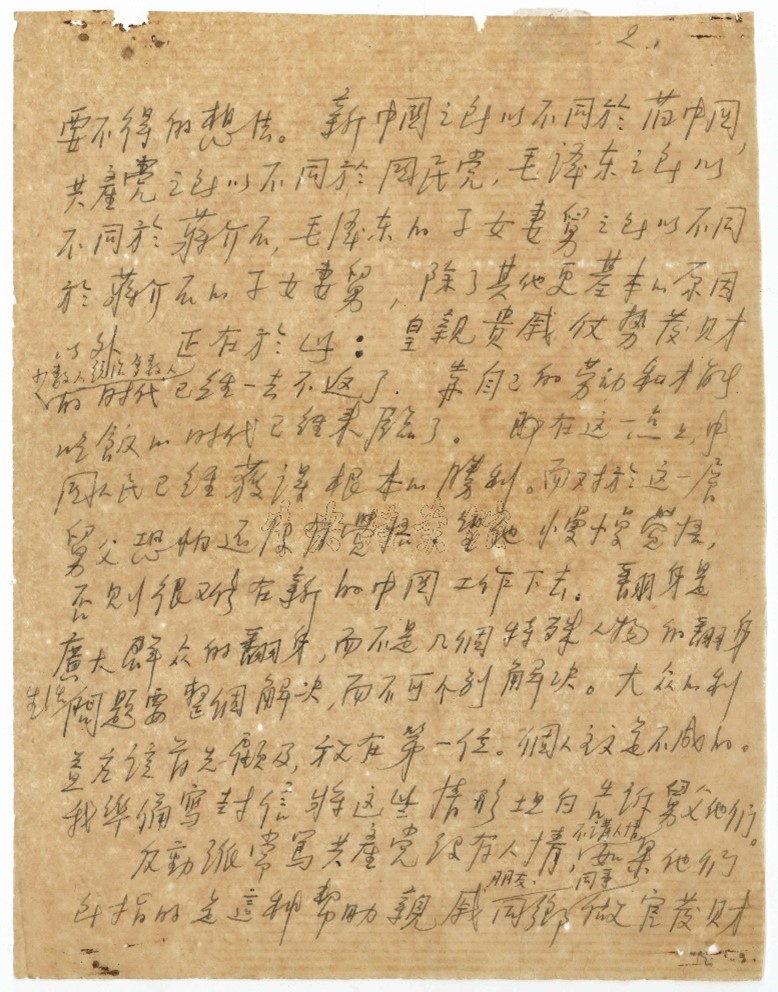 2.
要不得的想法。新中國之所以不同於舊中国,
共產党之所以不同於国民党,毛泽东之所以
不同於蔣介石,毛泽东的子女妻舅之所以不同
於蔣介石的子女妻舅,除了其他更基本的原因
以外,正在於此:皇親貴戚仗势發财
少數人統治多數人
的时代已经一去不返了。靠自己的劳动和才能
吃飯的时代已经来臨了。即在这一点上,中
国人民已经獲得根本的勝利。而对於这一层
舅父恐怕还沒有覺悟。望他慢慢覺悟,
否则很难在新的中国工作下去。翻身是
廣大群众的翻身,而不是几個特殊人物的翻身
生活問題要整個解决,而不可个别解决。大众的利
益应该首先顧及,放在第一位。個人主义是不成的。
我準備寫封信將这些情形坦白告訴舅父他们。
不講人情
反動派常罵共產党没有人情,如果他们
朋友 同事
所指的是這种帮助親戚 同鄉做官發财